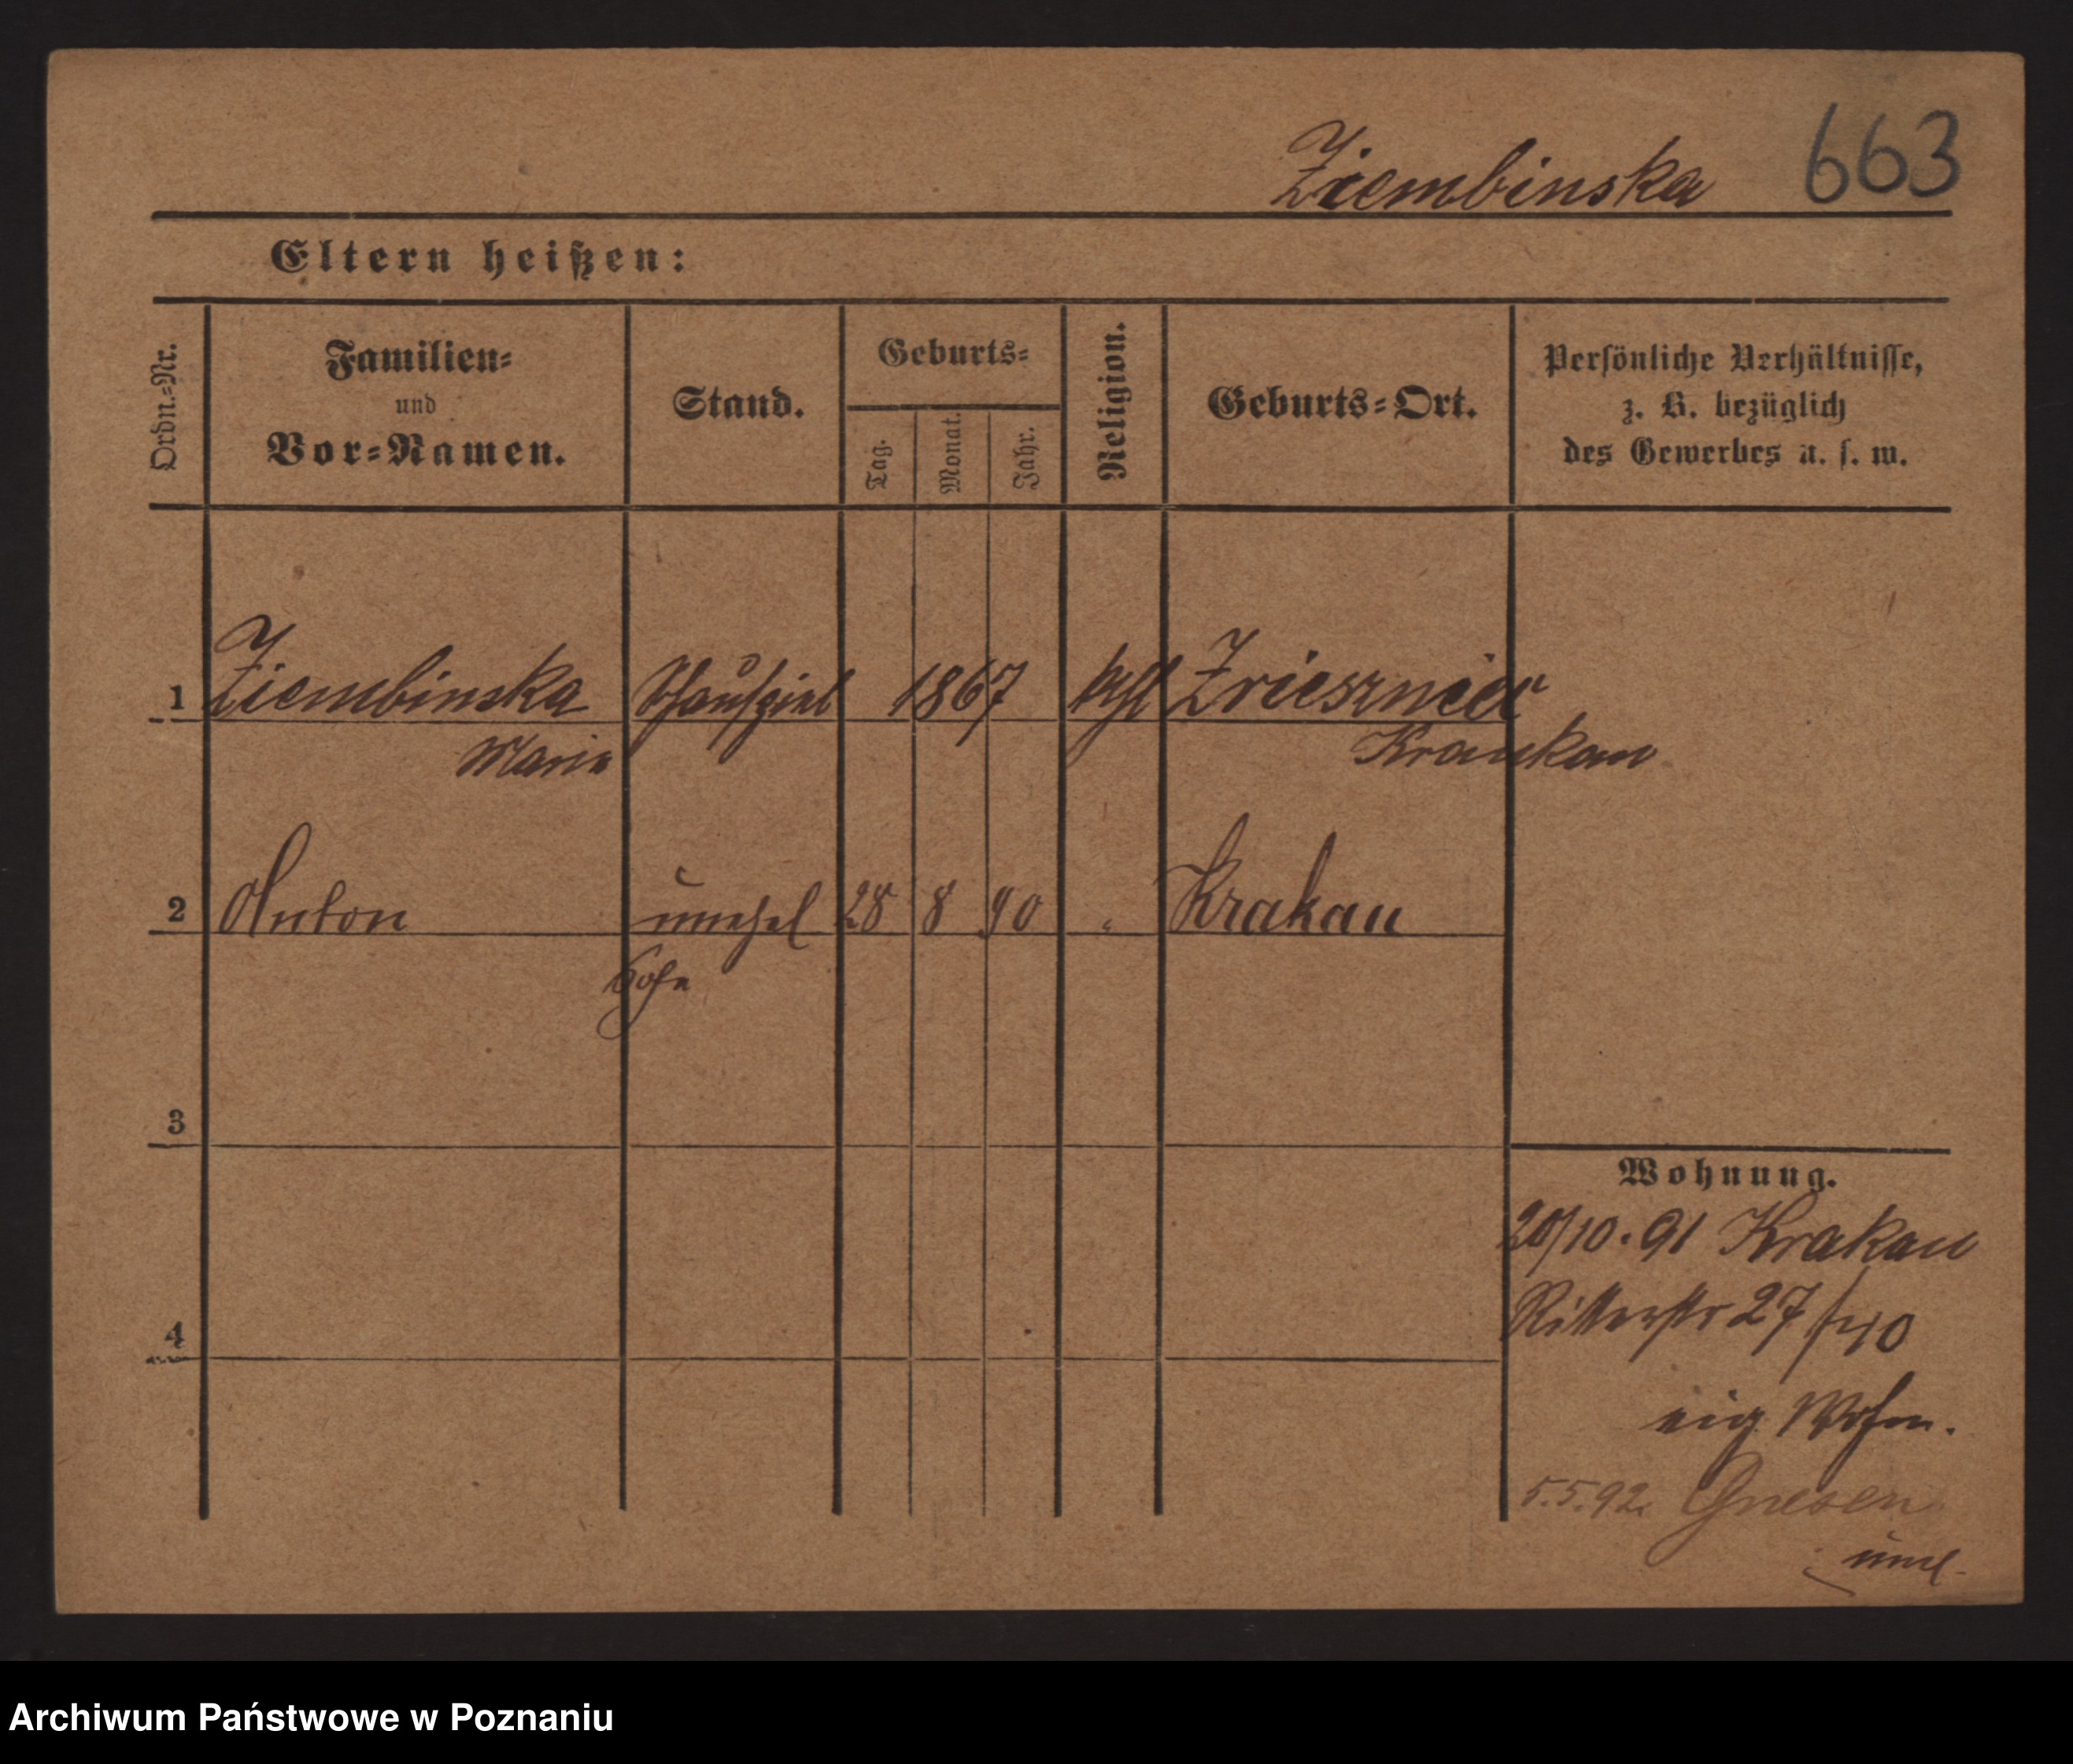 Ziembinska 663
Eltern heißen:
Ordn.=Nr.
Familien=
und
Vor=Namen.
Stand.
Geburts=
Tag.
Monat.
Jahr.
Religion.
Geburts=Ort.
Persönliche Verhältnisse,
z. B. bezüglich
des Gewerbes u. s. w.
1 Ziembinska Schauspiel 1867 kthl
Marie Kraukau
2 Anton unehel 28 8 90 " Krakau
Sohn
3
4
Wohnung.
20/10. 91 Krakau
Ritterstr 27
eig Wohn.
5.5.92. Gnesen